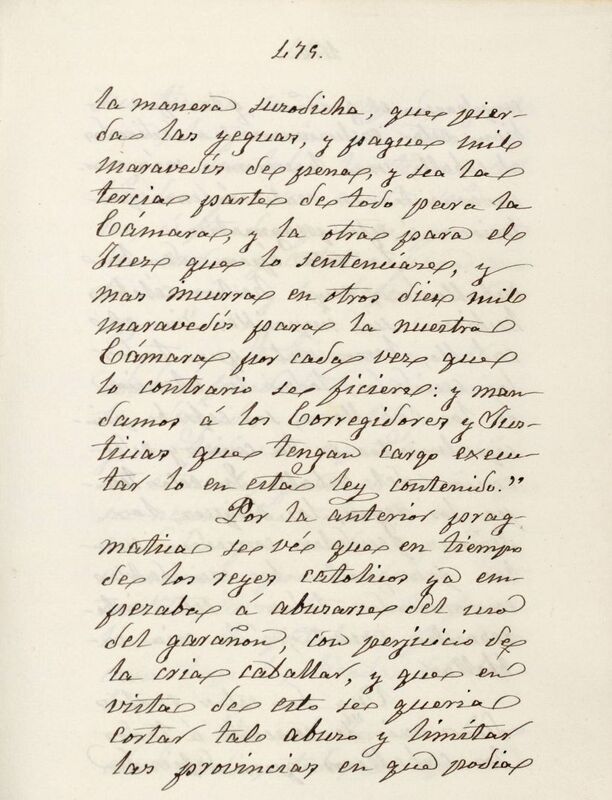 475.
la manera susodicha, que pier-
da las yeguas, y pague mil
maravedís de pena, y sea la
tercia parte de todo para la
Cámara, y la otra para el
Juez que lo sentenciare, y
mas incurra en otros diez mil
maravedís para la nuestra
Cámara por cada vez que
lo contrario se ficiere: y man-
damos á los Corregidores y Jus-
ticias que tengan cargo execu-
tar lo en esta ley contenido."
Por la anterior prag-
matica se vé que en tiempo
de los reyes catolicos ya em-
pezaba á abusarse del uso
del garañon, con perjuicio de
la cria caballar, y que en
vista de esto se queria
cortar tal abuso y limitar
las provincias en que podia